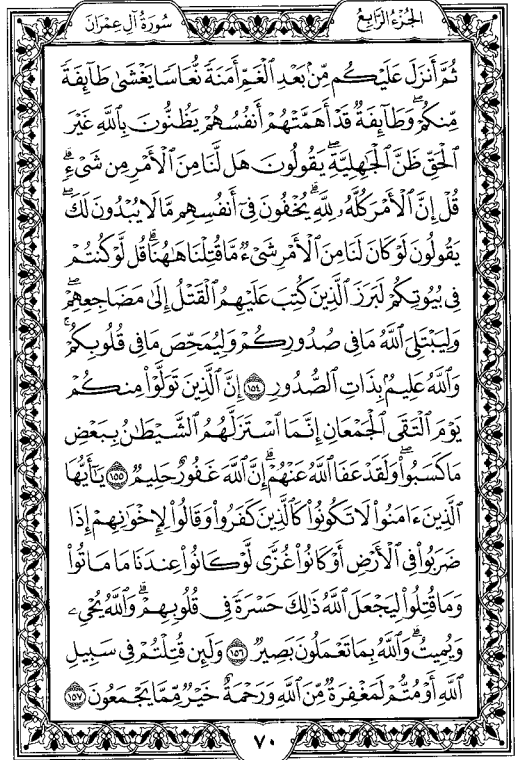 الجزء الرابع
سورة آل عمران
ثُمَّ أَنزَلَ عَلَيْكُم مِّنۢ بَعْدِ ٱلْغَمِّ أَمَنَةً نُّعَاسًا يَغْشَىٰ طَآئِفَةً
مِّنكُمْ ۖ وَطَآئِفَةٌ قَدْ أَهَمَّتْهُمْ أَنفُسُهُمْ يَظُنُّونَ بِٱللَّهِ غَيْرَ
ٱلْحَقِّ ظَنَّ ٱلْجَٰهِلِيَّةِ ۖ يَقُولُونَ هَل لَّنَا مِنَ ٱلْأَمْرِ مِن شَىْءٍ ۗ
قُلْ إِنَّ ٱلْأَمْرَ كُلَّهُۥ لِلَّهِ ۗ يُخْفُونَ فِىٓ أَنفُسِهِم مَّا لَا يُبْدُونَ لَكَ ۖ
يَقُولُونَ لَوْ كَانَ لَنَا مِنَ ٱلْأَمْرِ شَىْءٌ مَّا قُتِلْنَا هَٰهُنَا ۗ قُل لَّوْ كُنتُمْ
فِى بُيُوتِكُمْ لَبَرَزَ ٱلَّذِينَ كُتِبَ عَلَيْهِمُ ٱلْقَتْلُ إِلَىٰ مَضَاجِعِهِمْ ۖ
وَلِيَبْتَلِىَ ٱللَّهُ مَا فِى صُدُورِكُمْ وَلِيُمَحِّصَ مَا فِى قُلُوبِكُمْ ۗ
وَٱللَّهُ عَلِيمٌۢ بِذَاتِ ٱلصُّدُورِ ١٥٤ إِنَّ ٱلَّذِينَ تَوَلَّوْا۟ مِنكُمْ
يَوْمَ ٱلْتَقَى ٱلْجَمْعَانِ إِنَّمَا ٱسْتَزَلَّهُمُ ٱلشَّيْطَٰنُ بِبَعْضِ
مَا كَسَبُوا۟ ۖ وَلَقَدْ عَفَا ٱللَّهُ عَنْهُمْ ۗ إِنَّ ٱللَّهَ غَفُورٌ حَلِيمٌ ١٥٥ يَٰٓأَيُّهَا
ٱلَّذِينَ ءَامَنُوا۟ لَا تَكُونُوا۟ كَٱلَّذِينَ كَفَرُوا۟ وَقَالُوا۟ لِإِخْوَٰنِهِمْ إِذَا
ضَرَبُوا۟ فِى ٱلْأَرْضِ أَوْ كَانُوا۟ غُزًّى لَّوْ كَانُوا۟ عِندَنَا مَا مَاتُوا۟
وَمَا قُتِلُوا۟ لِيَجْعَلَ ٱللَّهُ ذَٰلِكَ حَسْرَةً فِى قُلُوبِهِمْ ۗ وَٱللَّهُ يُحْىِۦ
وَيُمِيتُ ۗ وَٱللَّهُ بِمَا تَعْمَلُونَ بَصِيرٌ ١٥٦ وَلَئِن قُتِلْتُمْ فِى سَبِيلِ
ٱللَّهِ أَوْ مُتُّمْ لَمَغْفِرَةٌ مِّنَ ٱللَّهِ وَرَحْمَةٌ خَيْرٌ مِّمَّا يَجْمَعُونَ ١٥٧
٧٠